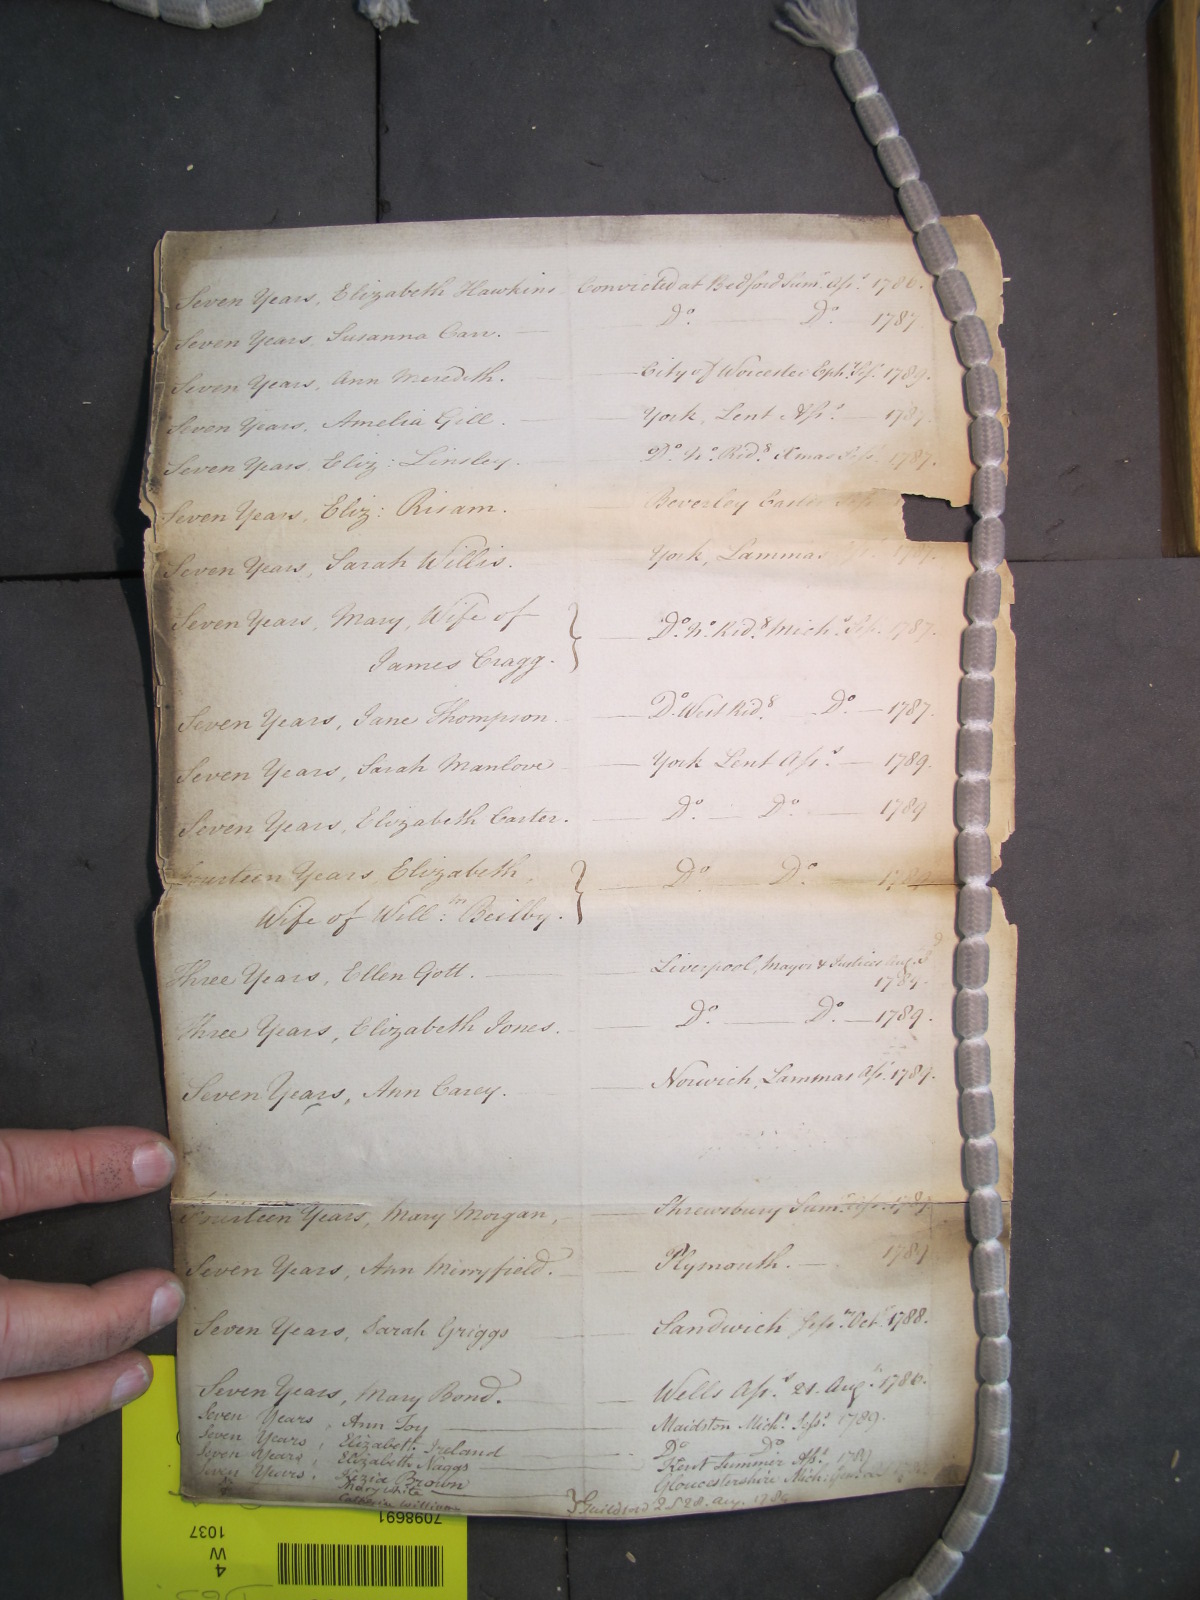 Seven Years, Elizabeth Hawkins Convicted at Bedford Sumr. Asss. 1786.
Seven Years, Susanna Carr. — Do. — Do. — 1787
Seven Years, Ann Meredith. — City of Worcester Eph: 1789.
Seven Years, Amelia Gill. — York, Lent Asss. — 1787.
Seven Years, Eliz: Linsley. — Do. No. Ridg. Xmas Sess. 1787.
Seven Years, Eliz: Risam. Beverley Easter
Seven Years, Sarah Willis. York, Lammas
Seven Years, Mary, Wife of
James Cragg. } — Do. No. Ridg. Michs. Sess. 1787.
Seven Years, Jane Thompson. — Do. West Ridg. Do. — 1787.
Seven Years, Sarah Manlove — York Lent Asss. — 1789.
Seven Years, Elizabeth Carter. — Do. — Do. — 1789
Fourteen Years Elizabeth,
Wife of Willm: Beilby. } — Do. — Do. —
Three Years, Ellen Gott. — Liverpool, Mayor & Justices Aug.
1789.
Three Years, Elizabeth Jones. — Do. — Do. — 1789.
Seven Years, Ann Carey. — Norwich, Lammas Ass. 1789.
Fourteen Years, Mary Morgan, — Shrewsbury Sumr. Ass. 1789.
Seven Years, Ann Merryfield. — Plymouth. — 1789
Seven Years, Sarah Griggs — Sandwich Sessn. Octr. 1788.
Seven Years, Mary Bond. — Wells Asss. 21. Aug. 1786.
Seven Years, Ann Foy — Maidston Michs. Sess. 1789.
Seven Years, Elizabeth Ireland — Do. Do.
Seven Years, Elizabeth Naggs — Kent Summer Asss. 1789
Seven Years. Kezia Brown — Gloucestershire Mich:
Mary White
Catherine Williams } Guildford 28. Aug. 1789
7098691
4
W
1037